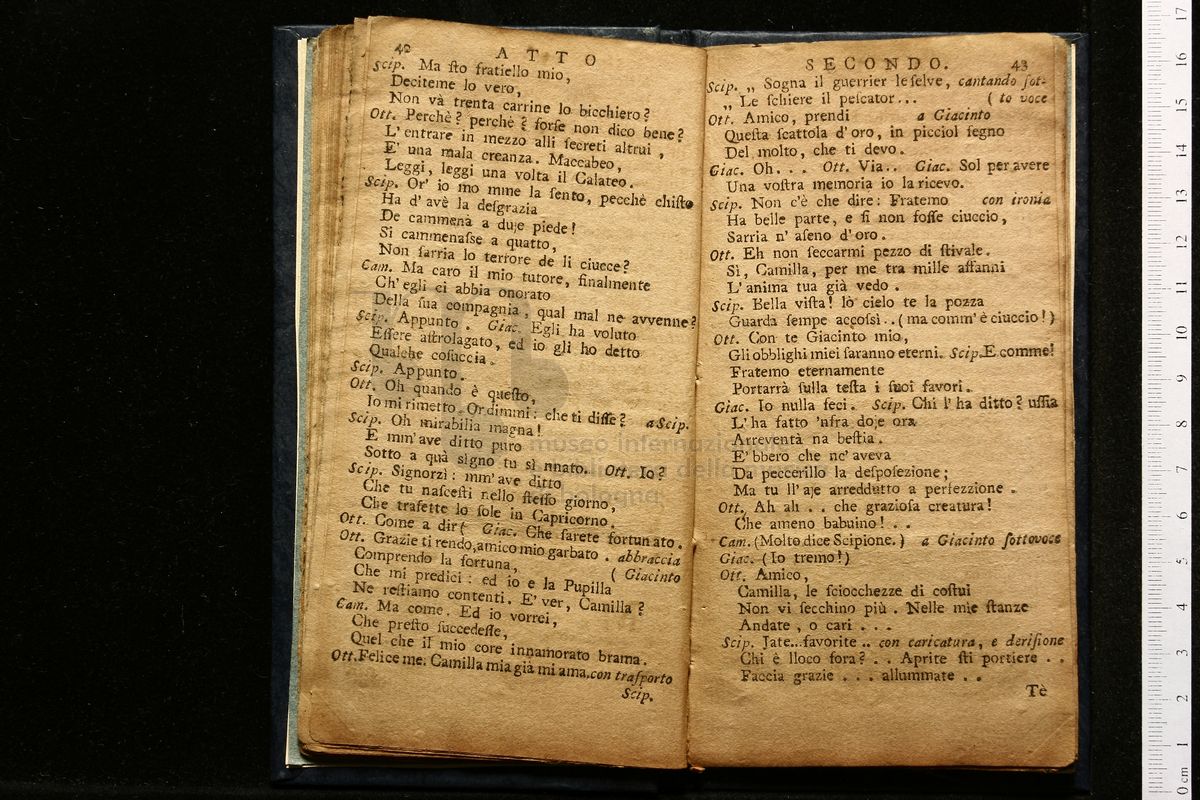 42 ATTO
Scip. Ma ſto fratiello mio,
Deciteme lo vero,
Non và trenta carrine lo bicchiero?
Ott. Perchè? perchè? forſe non dico bene?
L'entrare in mezzo alli ſecreti altrui,
E' una mala creanza. Maccabeo,
Leggi, leggi una volta il Galateo.
Scip. Or' io mo mme la ſento, pecchè chiſto
Ha d'avè la deſgrazia
De cammenà a duje piede!
Si cammenaſſe a quatto,
Non ſarria lo terrore de li ciucce?
Cam. Ma caro il mio tutore, finalmente
Ch'egli ci abbia onorato
Della ſua compagnia, qual mal ne avvenne?
Scip. Appunto. Giac. Egli ha voluto
Eſſere aſtrolagato, ed io gli ho detto
Qualche coſuccia.
Scip. Appunto.
Ott. Oh quando è queſto,
Io mi rimetto. Or dimmi: che ti diſſe? a Scip.
Scip. Oh mirabilia magna!
E mm'ave ditto puro
Sotto a quà ſigno tu ſì nnato. Ott. Io?
Scip. Signorzì: mm'ave ditto
Che tu naſceſti nello ſteſſo giorno,
Che traſette lo ſole in Capricorno.
Ott. Come a dir( Giac. Che ſarete fortunato.
Ott. Grazie ti rendo, amico mio garbato. abbraccia
Comprendo la fortuna, ( Giacinto
Che mi predici: ed io e la Pupilla
Ne reſtiamo contenti. E' ver, Camilla?
Cam. Ma come. Ed io vorrei,
Che preſto ſuccedeſſe,
Quel che il mio core innamorato brama.
Ott. Felice me: Camilla mia già mi ama. con traſporto
Scip.
SECONDO. 43
Scip. „ Sogna il guerrier le ſelve, cantando ſot-
„ Le ſchiere il peſcator... ( to voce
Ott. Amico, prendi a Giacinto
Queſta ſcattola d'oro, in picciol ſegno
Del molto, che ti devo.
Giac. Oh... Ott. Via.. Giac. Sol per avere
Una voſtra memoria io la ricevo.
Scip. Non c'è che dire: Fratemo con ironia
Ha belle parte, e ſi non foſſe ciuccio,
Sarria n'aſeno d'oro.
Ott. Eh non ſeccarmi pezzo di ſtivale.
Sì, Camilla, per me tra mille affanni
L'anima tua già vedo.
Scip. Bella viſta! lò cielo te la pozza
Guarda ſempe accoſsì..( ma comm'è ciuccio!)
Ott. Con te Giacinto mio,
Gli obblighi miei ſaranno eterni. Scip. E comme!
Fratemo eternamente
Portarrà ſulla teſta i ſuoi favori.
Giac. Io nulla feci. Scip. Chi l'ha ditto? uſſia
L'ha fatto 'nfra doje ora
Arreventà na beſtia.
E'bbero che nc'aveva
Da peccerillo la deſpoſezione;
Ma tu ll'aje arreddutto a perfezzione.
Ott. Ah ah.. che grazioſa creatura!
Che ameno babuino!..
Cam. (Molto dice Scipione.) a Giacinto ſottovoce
Giac. (Io tremo!)
Ott. Amico,
Camilla, le ſciocchezze di coſtui
Non vi ſecchino più. Nelle mie ſtanze
Andate, o cari...
Scip. Jate...favorite.. con caricatura, e deriſione
Chi è lloco fora?.. Aprite ſti portiere..
Faccia grazie... allummate..
Tè
museo internazionale
dell
0 cm 1 2 3 4 5 6 7 8 9 10 11 12 13 14 15 16 17